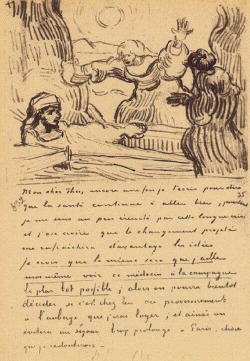 Mon cher Theo, encore une fois je t'écris pour dire
que la santé continue à aller bien, pourtant
je me sens un peu éreinté par cette longue crise
et j'ose croire que le changement projeté
me rafraichira davantage les idées
Je crois que le mieux sera que j'aille
moi même voir ce médecin à la campagne
le plus tôt possible, alors on pourra bientot
décider si c'est chez lui ou provisoirement
à l'auberge que j'irai loger, et ainsi on
évitera un séjour trop prolongé à Paris, chose
que je redouterais.